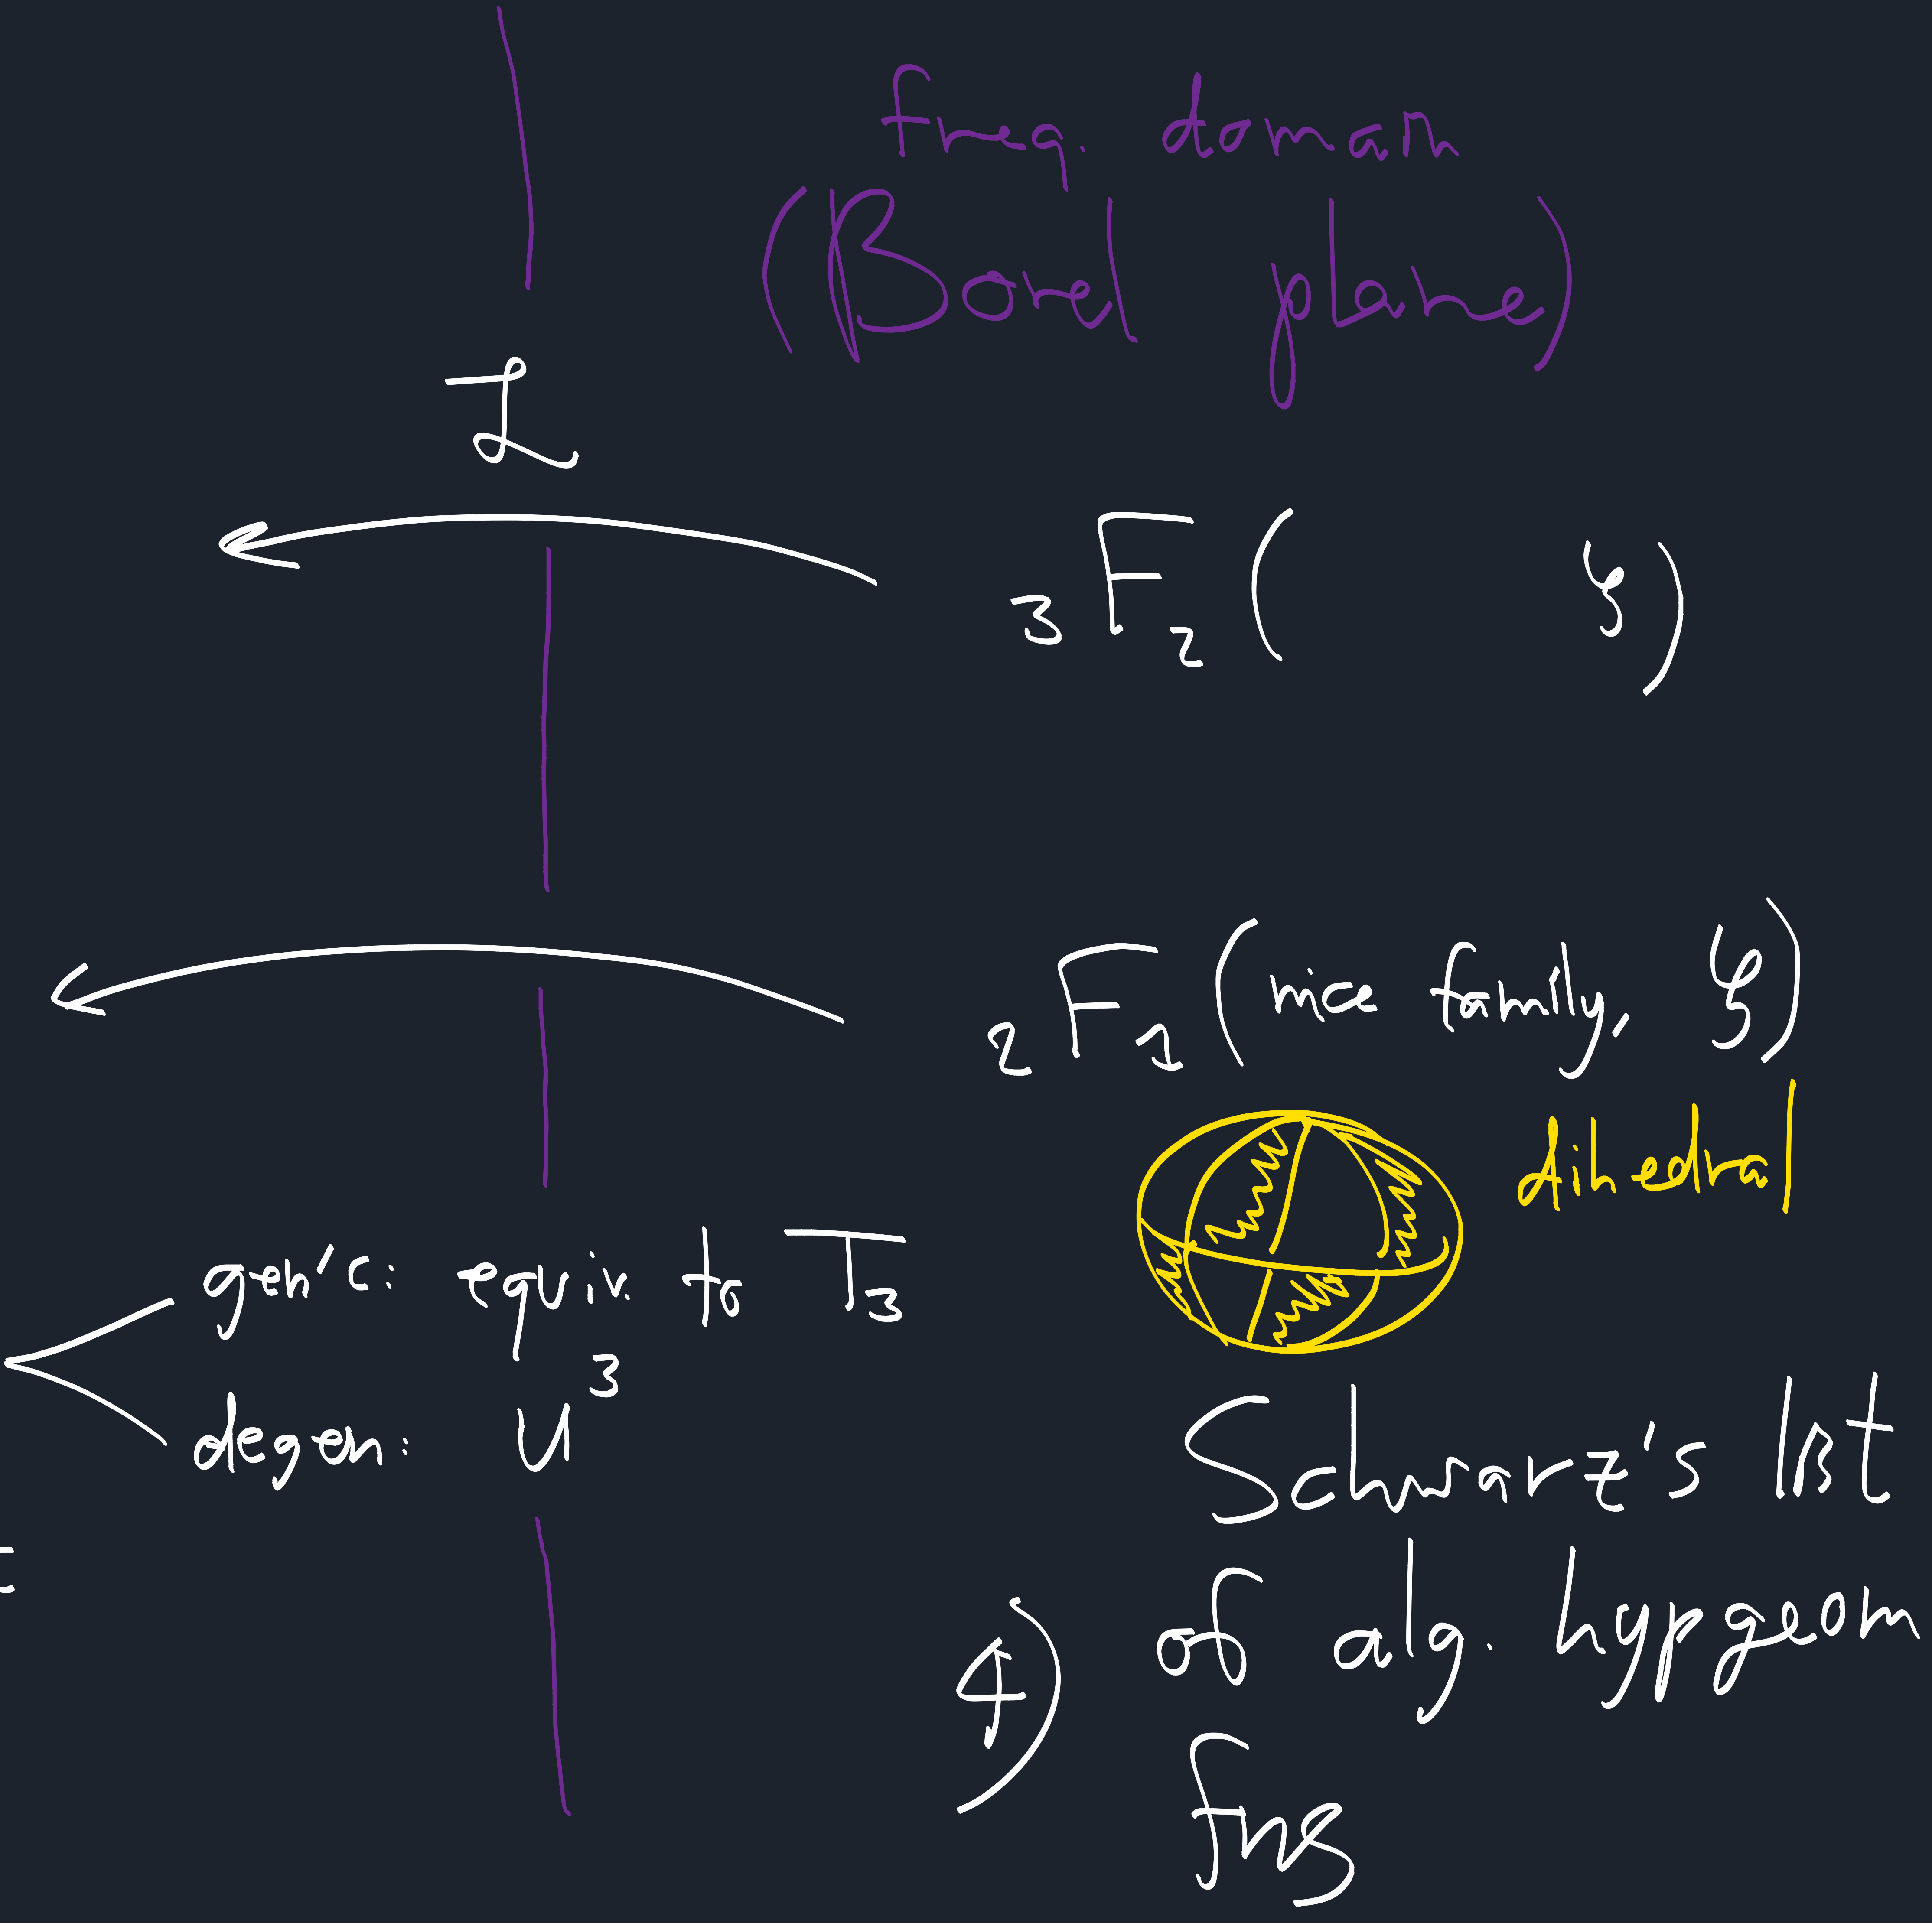 freq. domain
(Borel plane)
ℒ
₃F₂( ζ)
₂F₁(nice family, ζ)
dihedral
gen'c: equiv. to T₃
degen: u³
Schwarz's list
4) of alg. hypgeom.
fns